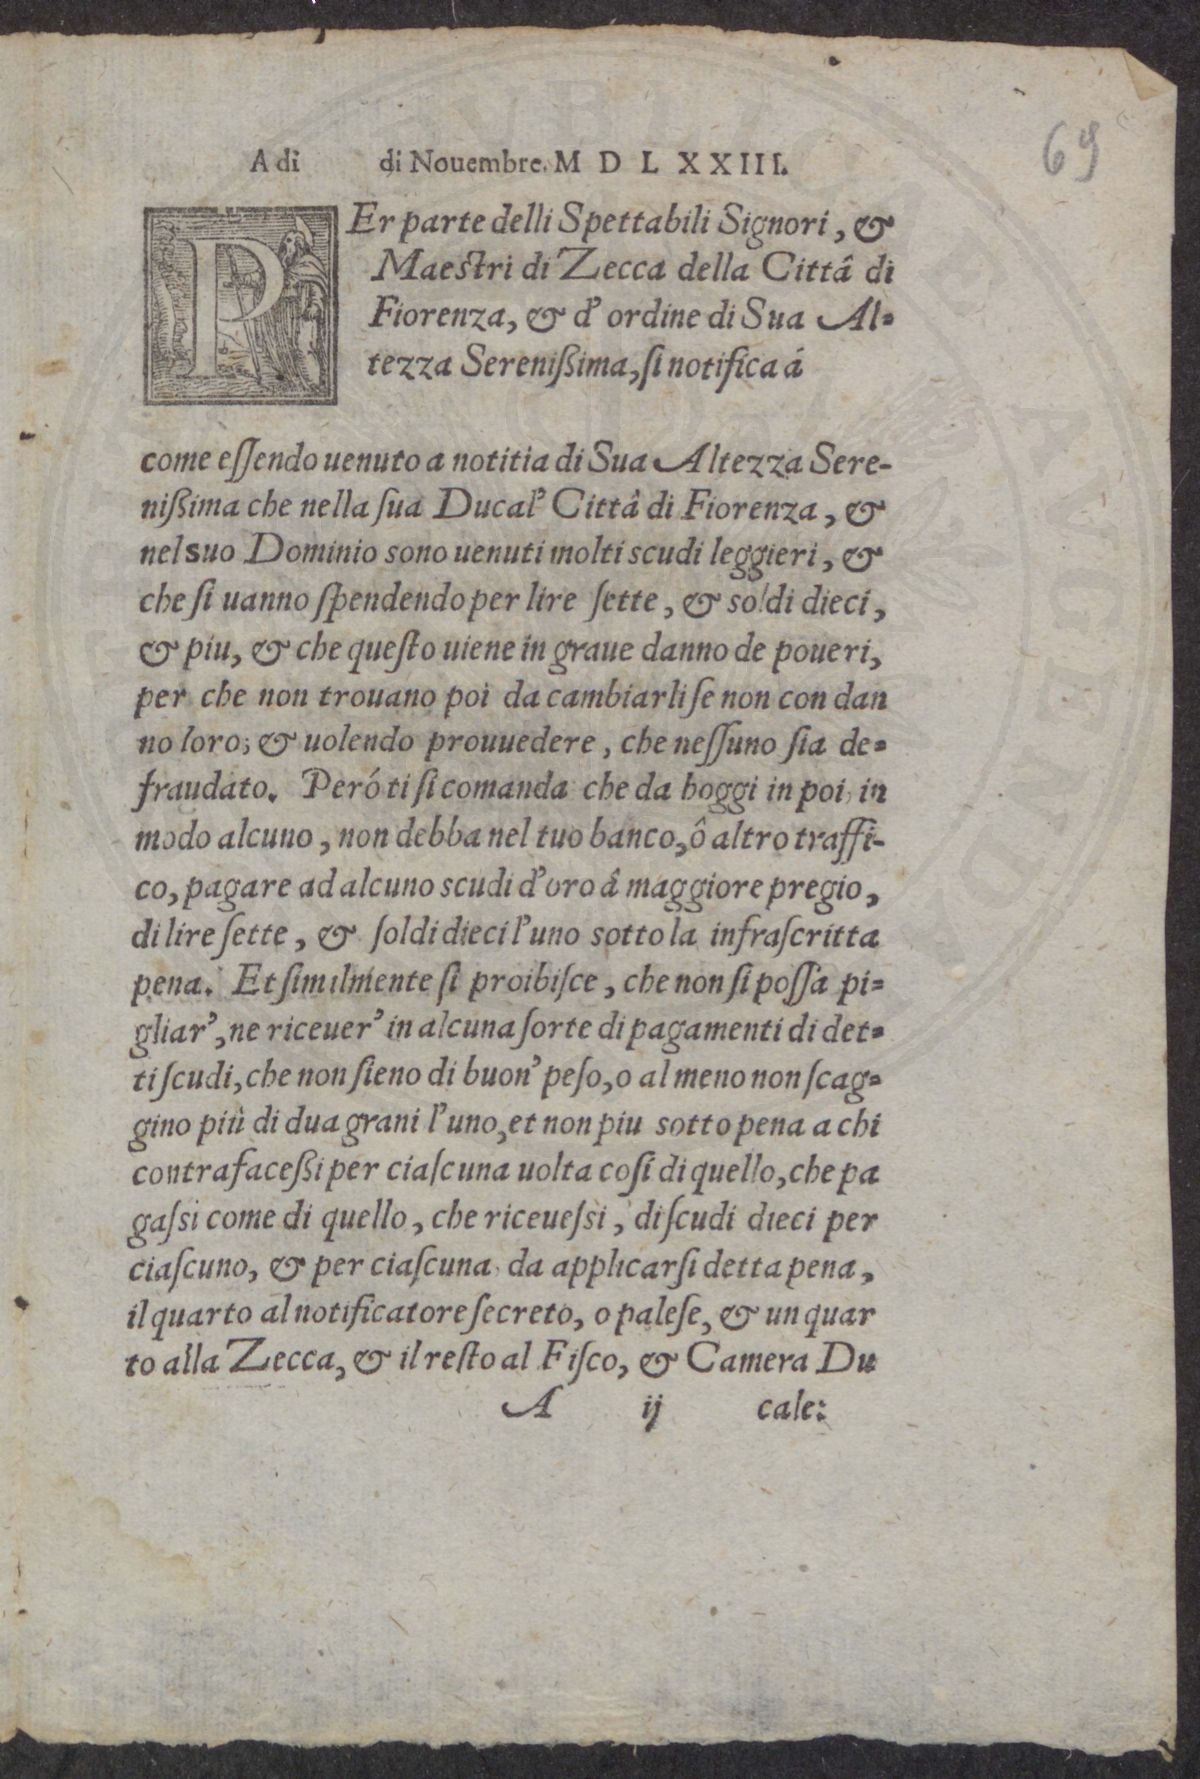 69
A di di Nouembre. M D L X X I I I.
PEr parte delli Spettabili Signori, &
Maestri di Zecca della Cittâ di
Fiorenza, & d' ordine di Sua Al=
tezza Serenißima, ſi notifica á
come eſſendo uenuto a notitia di Sua Altezza Sere-
nißima che nella ſua Ducal' Cittâ di Fiorenza, &
nel suo Dominio sono uenuti molti scudi leggieri, &
che ſi uanno ſpendendo per lire ſette, & soldi dieci,
& piu, & che queſto uiene in graue danno de poueri,
per che non trouano poi da cambiarli ſe non con dan
no loro; & uolendo prouuedere, che neſſuno ſia de=
fraudato. Peró ti ſi comanda che da hoggi in poi in
modo alcuno, non debba nel tuo banco, ô altro traffi-
co, pagare ad alcuno scudi d'oro â maggiore pregio,
di lire ſette, & ſoldi dieci l'uno sotto la infraſcritta
pena. Et ſimilmente ſi proibiſce, che non ſi poſſa pi=
gliar', ne riceuer' in alcuna ſorte di pagamenti di det=
ti ſcudi, che non ſieno di buon' peſo, o al meno non ſcag=
gino più di dua grani l'uno, et non piu sotto pena a chi
contrafaceßi per ciaſcuna uolta coſi di quello, che pa
gaſsi come di quello, che riceueſsi, di ſcudi dieci per
ciaſcuno, & per ciaſcuna da applicarſi detta pena,
il quarto al notificatore ſecreto, o paleſe, & un quar
to alla Zecca, & il reſto al Fiſco, & Camera Du
A ij cale: